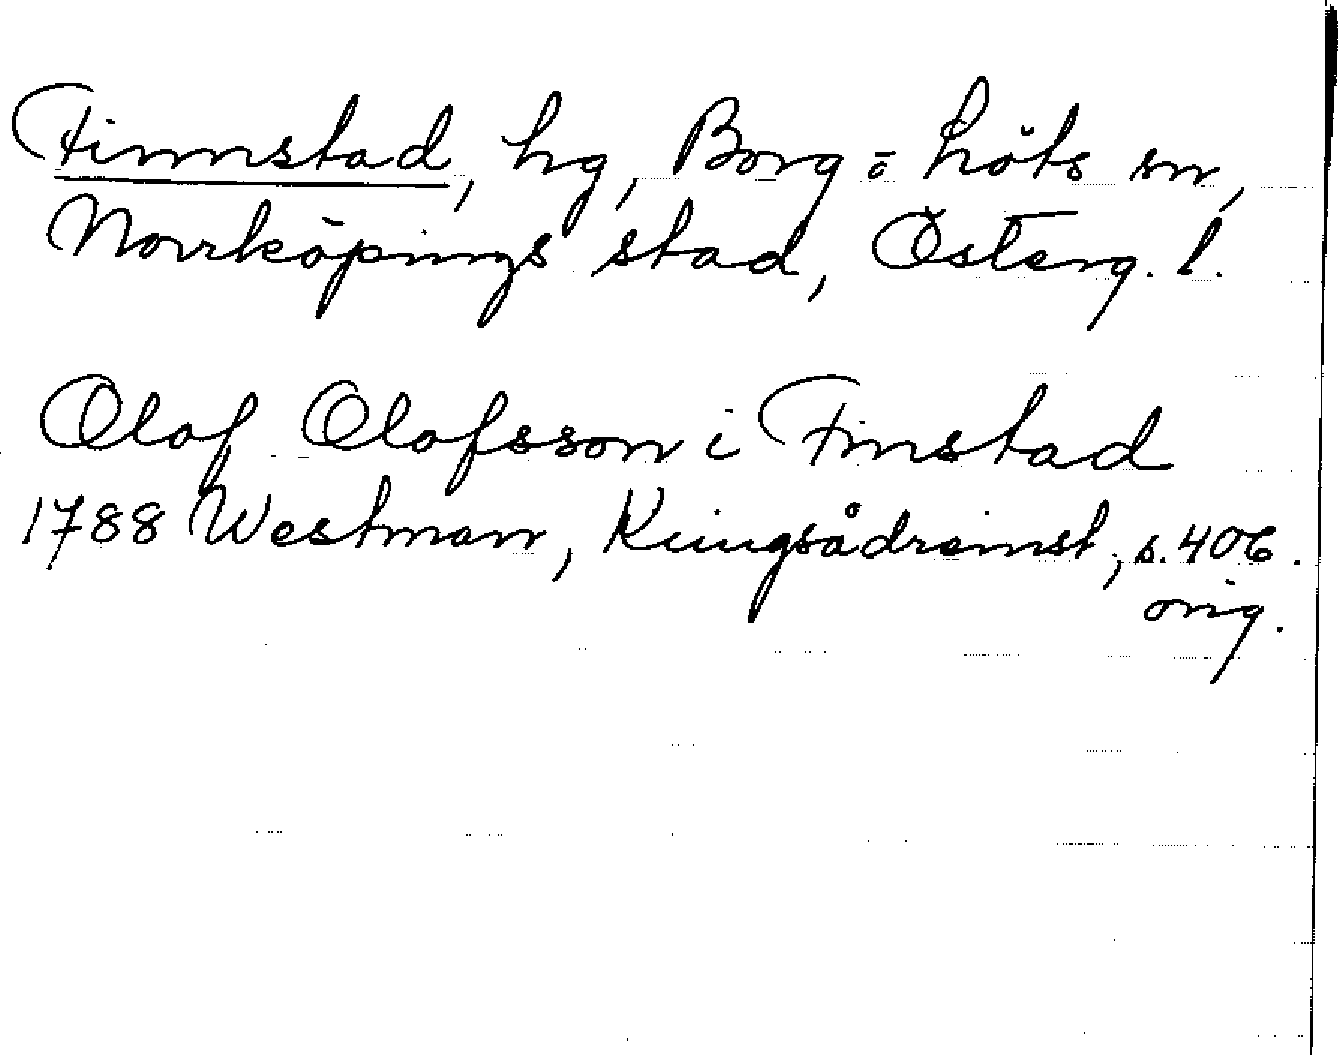 Finnstad, hg, Borg o Löts sn,
Norrköpings stad, Österg. l.
Olof Olofsson i Finstad
1788 Westman, Kungsådreinst, s. 406.
orig.